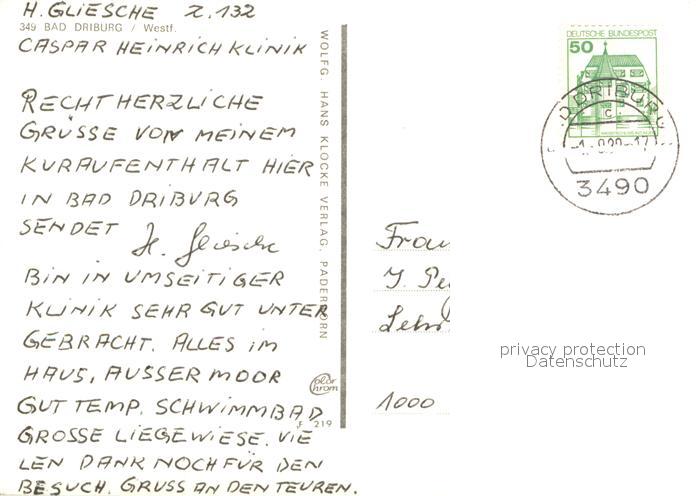 H. GLIESCHE Z. 132
349 BAD DRIBURG / Westf.
CASPAR HEINRICH KLINIK
RECHT HERZLICHE
GRÜSSE VON MEINEM
KURAUFENTHALT HIER
IN BAD DRIBURG
SENDET H. Gliesche
BIN IN UMSEITIGER
KLINIK SEHR GUT UNTER
GEBRACHT. ALLES IM
HAUS, AUSSER MOOR
GUT TEMP. SCHWIMMBAD
GROSSE LIEGEWIESE. VIE
LEN DANK NOCH FÜR DEN
BESUCH. GRUSS AN DEN TEUREN.
WOLFG. HANS KLOCKE VERLAG, PADERBORN
color chrom
F 219
DEUTSCHE BUNDESPOST
50
DRIBURG
c
3490
Frau
J. Pe
Lehr
1000
privacy protection
Datenschutz